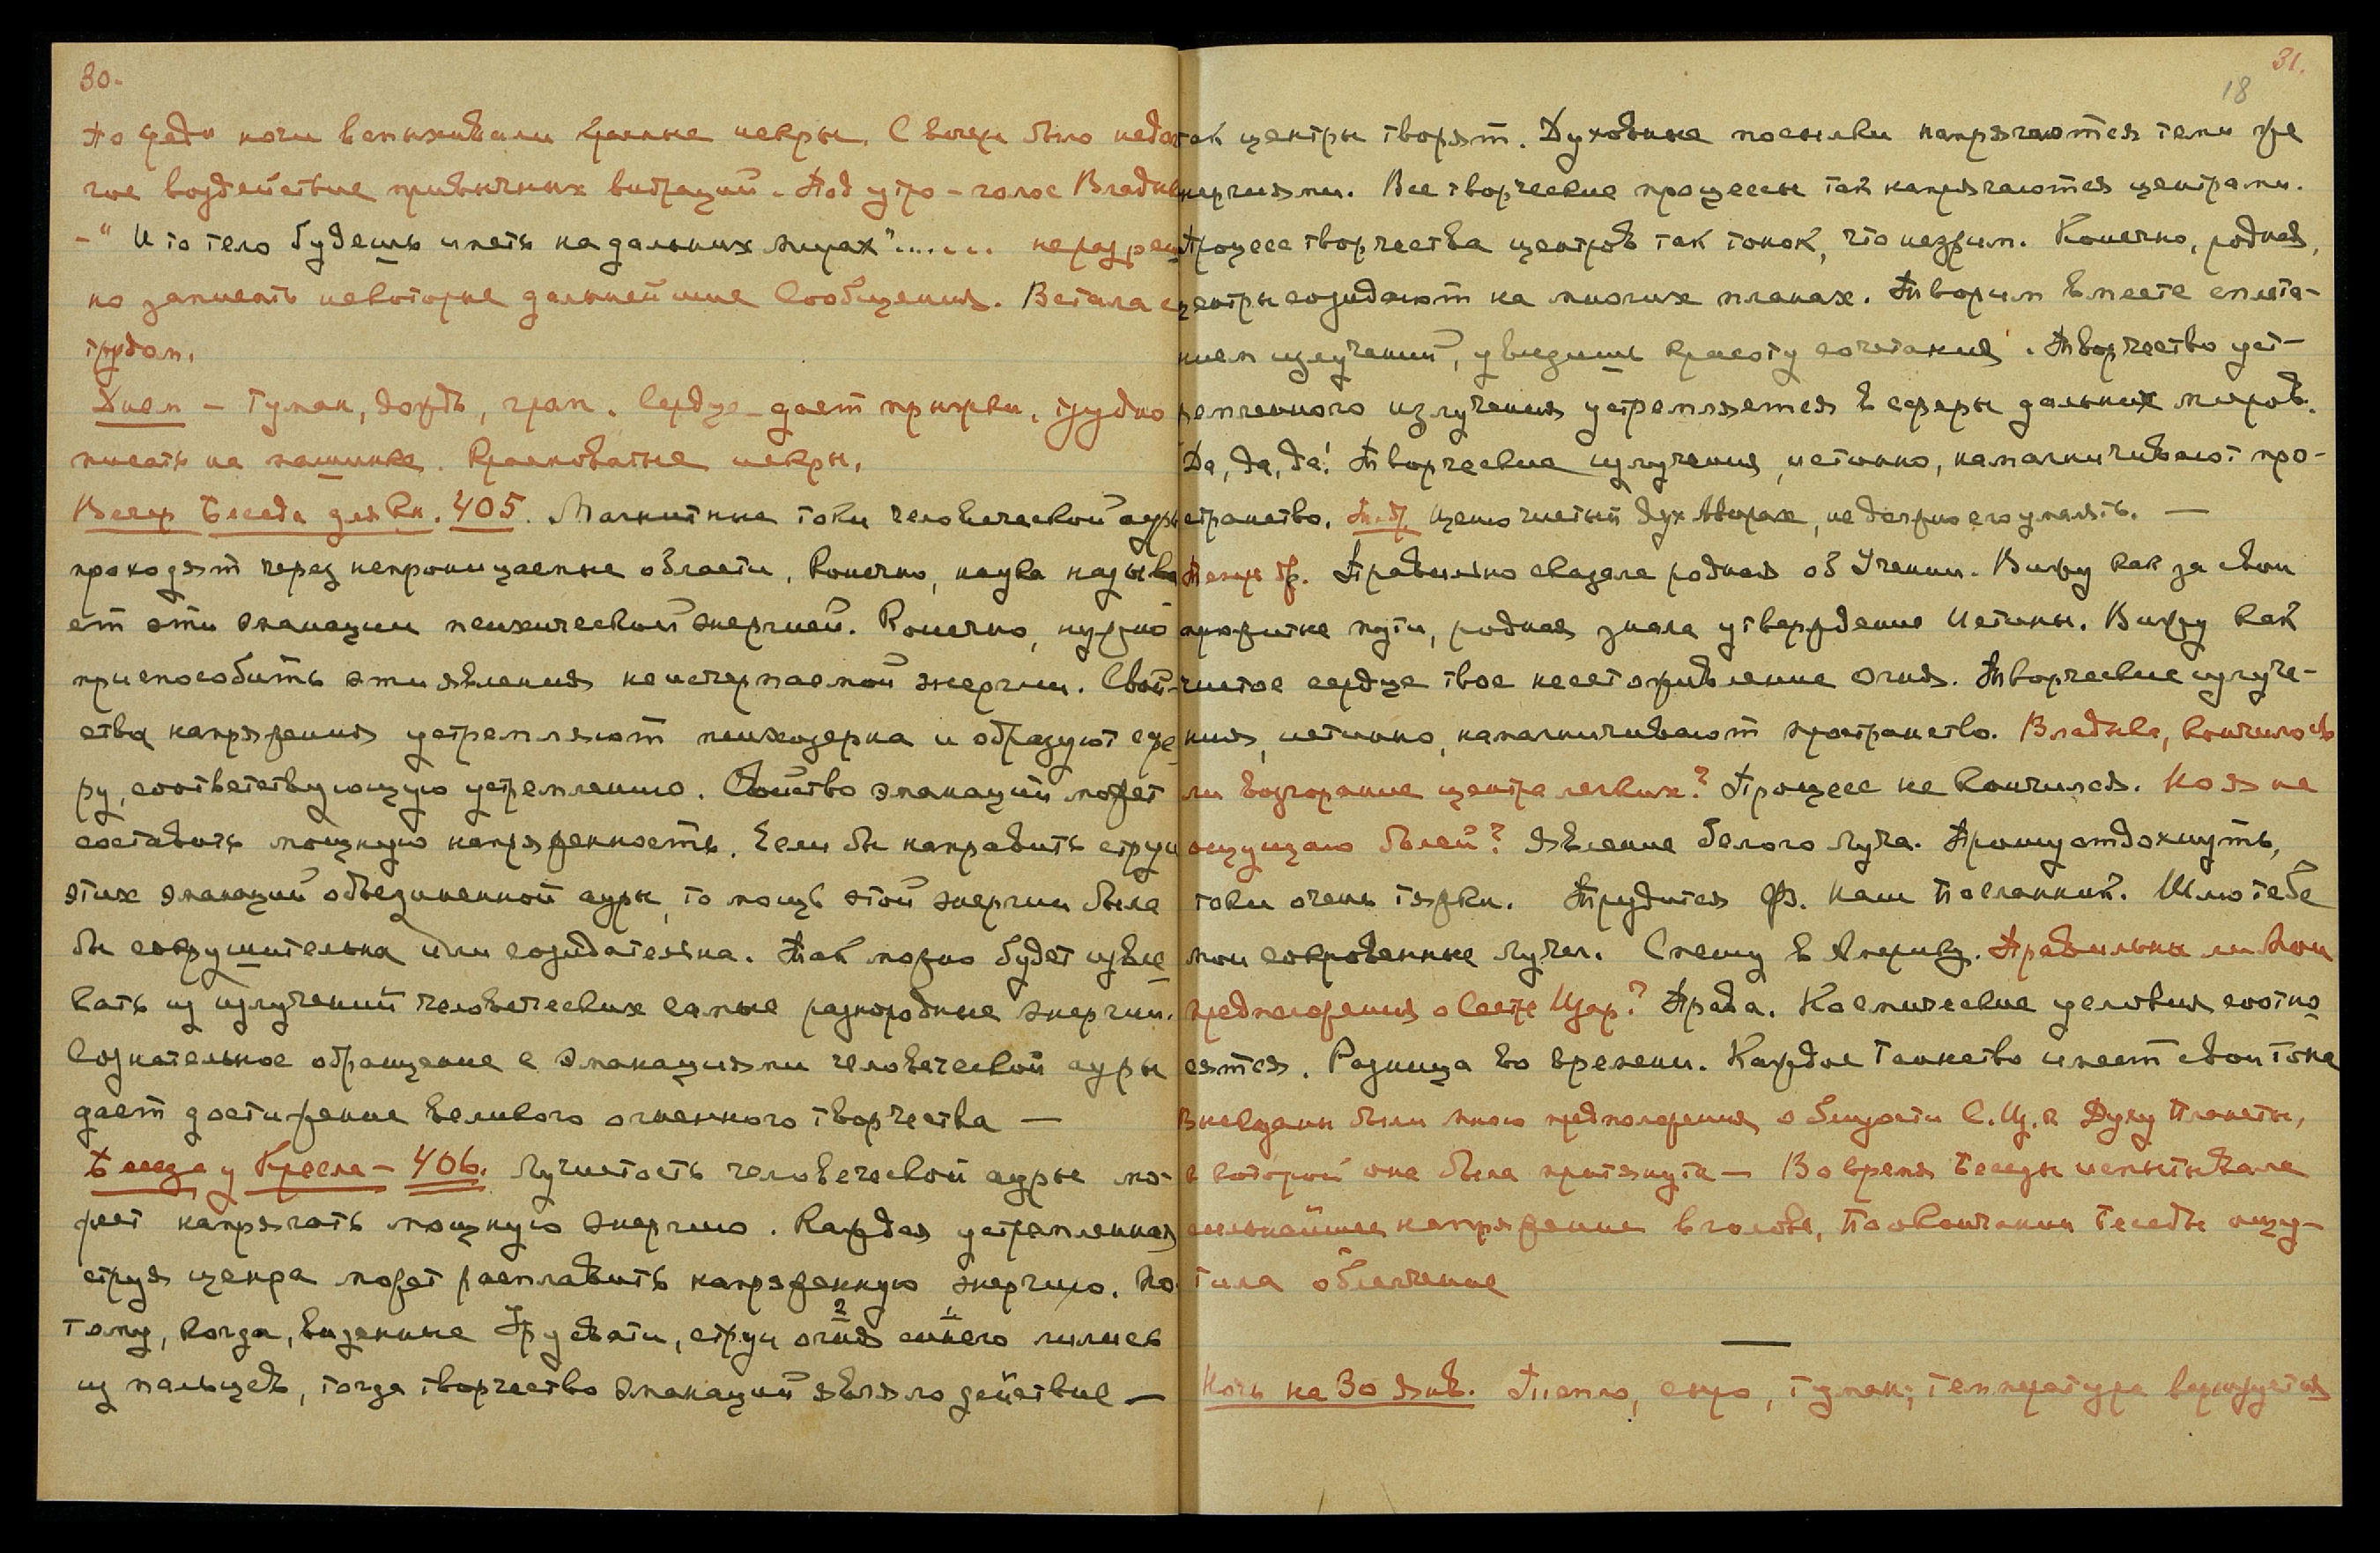 30.
но среди ночи вспыхивали красные искры. С вечера было недол
гое воздействие привычных вибраций. Под утро – голос Владыки
– "И то тело будешь иметь на дальних мирах"....... не разреш
но записать некоторые дальнейшие Сообщения. Встала с
трудом.
Днем – туман, дождь, гром. Сердце дает прыжки, трудно
писать на машинке. Красноватые искры.
Вечер Беседа для Кн. 405. Магнитные токи человеческой ауры
проходят через непроницаемые области. Конечно, наука называ
ет эти эманации психической энергией. Конечно, нужно
приспособить эти явления неисчерпаемой энергии. Свой-
ства напряжения устремляют психозерна и образуют сфе
ру, соответствующую устремлению. Свойство эманаций может
составить мощную напряженность. Если бы направить струи
этих эманаций объединенной ауры, то мощь этой энергии была
бы сокрушительна или созидательна. Так можно будет извле
кать из излучений человеческих самые разнородные энергии.
Сознательное обращение с эманациями человеческой ауры
дает достижение великого огненного творчества —
Беседа у Кресла – 406. Лучистость человеческой ауры мо-
жет напрягать мощную энергию. Каждая устремленная
струя центра может расплавить напряженную энергию. По-
тому, когда, виденные Урусвати, струи огня синего лились
2 1
из пальцев, тогда творчество эманаций являло действие —
31.
18
так центры творят. Духовные посылки напрягаются теми же
энергиями. Все творческие процессы так напрягаются центрами.
Процесс творчества центров так тонок, что незрим. Конечно, родная,
центры созидают на многих планах. Творим вместе сплета-
нием излучений, увидишь красоту сочетания. Творчество уст-
ремленного излучения устремляется в сферы дальних миров.
Да, да, да! Творческие излучения, истинно, намагничивают про-
странство. Чистый дух не должно его умалять. —
Правильно сказала родная об Учении. Вижу как за твои
прожитые пути, родная знала утверждение Истины. Вижу как
чистое сердце твое несет оявление огня. Творческие излуче-
ния, истинно, намагничивают пространство. Владыка, кончилось
ли возгорание центра легких? Процесс не кончился. Но я не
ощущаю болей? Явление белого луча. Прошу отдохнуть,
токи очень тяжки. Трудится Ф. Наш Посланник. Шлю тебе
мои сокровенные лучи. Спешу в Америку. Правильны ли мои
предположения о Сестре Изар? Права. Космические условия соотно
сятся. Разница во времени. Каждое Таинство имеет свои тона
Высказаны были мною предположения о близости С. Из. к Духу Планеты,
к которой она была притянута — Во время Беседы испытывала
сильнейшее напряжение в голове, По окончании Беседы ощу-
тила облегчение
—
Ночь на 30 янв. Тепло, сыро, туман; температура